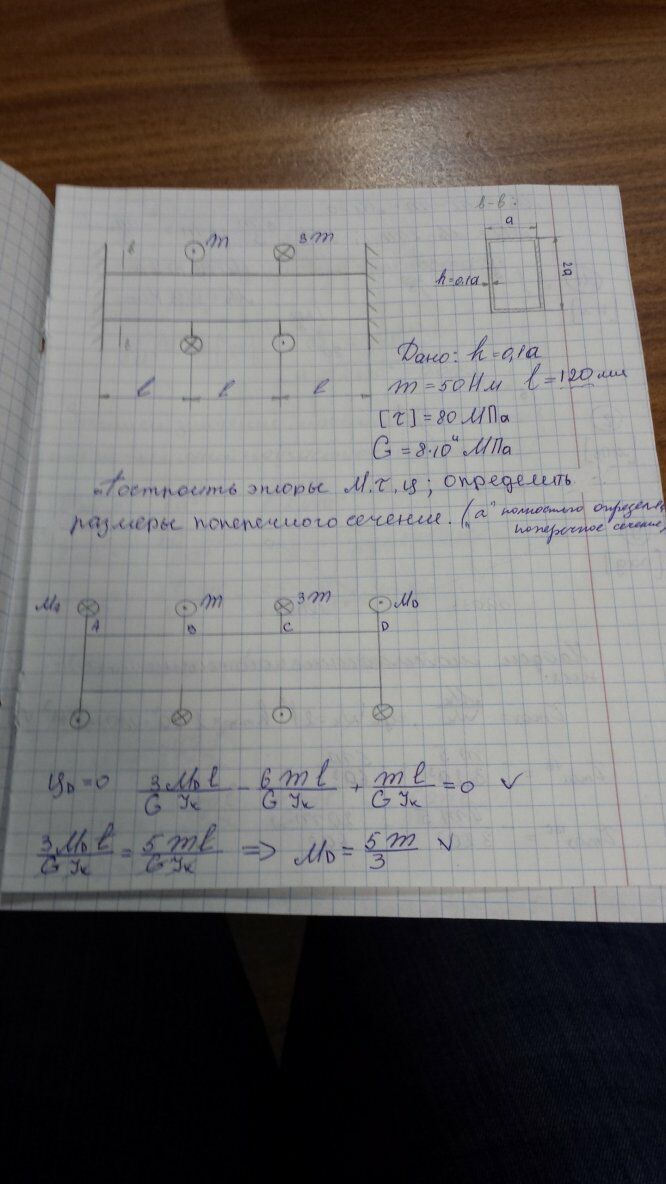 в-в:
a
m
3m
в
h=0,1a
2a
в
Дано: h=0,1a
l
l
l
m=50 Нм l=120 мм
[τ]=80 МПа
G=8·10⁴ МПа
Построить эпюры М, τ, φ; определить
размеры поперечного сечение. ("а" полностью определ
поперечное сечение)
m
3m
M_D
A
B
C
D
φ_D=0 3M_D l/G J_к - 6ml/G J_к + ml/G J_к = 0 ✓
3M_D l/G J_к = 5ml/G J_к => M_D = 5m/3 ✓